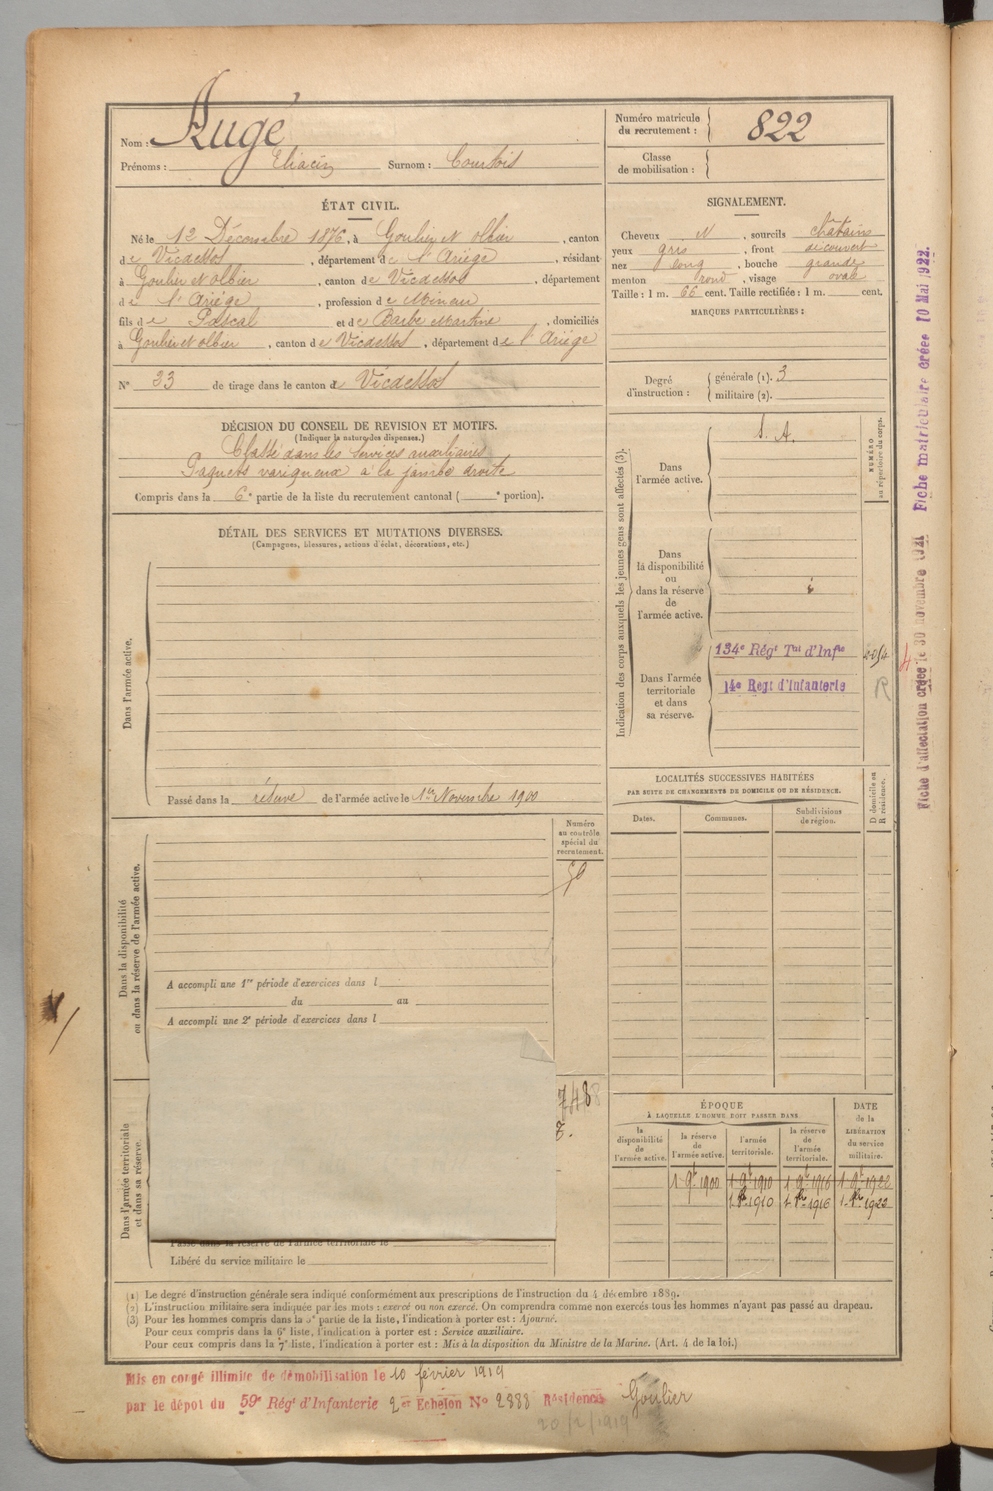 Nom : Augé
Prénoms : Eliacin Surnom : Courtois
Numéro matricule du recrutement : 822
Classe de mobilisation :
ÉTAT CIVIL.
Né le 12 Décembre 1876, à Goulier et olbier, canton
de Vicdessos, département de l'Ariége, résidant
à Goulier et olbier, canton de Vicdessos, département
de l'Ariége, profession de Mineur
fils de Pascal et de Barbe Martine, domiciliés
à Goulier et olbier, canton de Vicdessos, département de l'Ariége
N° 33 de tirage dans le canton de Vicdessos
SIGNALEMENT.
Cheveux et, sourcils châtains
yeux gris, front découvert
nez long, bouche grande
menton rond, visage ovale
Taille : 1 m. 66 cent. Taille rectifiée : 1 m. cent.
MARQUES PARTICULIÈRES :
Degré d'instruction : générale (1). 3
militaire (2).
DÉCISION DU CONSEIL DE REVISION ET MOTIFS.
(Indiquer la nature des dispenses.)
Classé dans les Services auxiliaires
Paquets variqueux à la jambe droite
Compris dans la 6e partie de la liste du recrutement cantonal ( e portion).
DÉTAIL DES SERVICES ET MUTATIONS DIVERSES.
(Campagnes, blessures, actions d'éclat, décorations, etc.)
Dans l'armée active.
Passé dans la réserve de l'armée active le 1er Novembre 1900
Indication des corps auxquels les jeunes gens sont affectés (3).
Dans l'armée active.
S. A.
NUMÉRO au répertoire du corps.
Dans la disponibilité ou dans la réserve de l'armée active.
Dans l'armée territoriale et dans sa réserve.
134e Régt Tal d'Infie
14e Regt d'Infanterie
R
LOCALITÉS SUCCESSIVES HABITÉES
PAR SUITE DE CHANGEMENTS DE DOMICILE OU DE RÉSIDENCE.
Dates. Communes. Subdivisions de région.
D domicile ou R résidence.
Dans la disponibilité ou dans la réserve de l'armée active.
Numéro au contrôle spécial du recrutement.
A accompli une 1re période d'exercices dans l
du au
A accompli une 2e période d'exercices dans l
Dans l'armée territoriale et dans sa réserve.
748
Passé dans la réserve de l'armée territoriale le
Libéré du service militaire le
ÉPOQUE
À LAQUELLE L'HOMME DOIT PASSER DANS
la disponibilité de l'armée active.
la réserve de l'armée active.
l'armée territoriale.
la réserve de l'armée territoriale.
DATE de la LIBÉRATION du service militaire.
1 9e 1900 1 9e 1910 1 9e 1916 1 9e 1922
1 8re 1910 1 8re 1916 1 8re 1922
(1) Le degré d'instruction générale sera indiqué conformément aux prescriptions de l'instruction du 4 décembre 1889.
(2) L'instruction militaire sera indiquée par les mots : exercé ou non exercé. On comprendra comme non exercés tous les hommes n'ayant pas passé au drapeau.
(3) Pour les hommes compris dans la 5e partie de la liste, l'indication à porter est : Ajourné.
Pour ceux compris dans la 6e liste, l'indication à porter est : Service auxiliaire.
Pour ceux compris dans la 7e liste, l'indication à porter est : Mis à la disposition du Ministre de la Marine. (Art. 4 de la loi.)
Mis en congé illimité de démobilisation le 10 février 1919
par le dépot du 59e Régt d'Infanterie 2e Echelon N° 2888 Résidence Goulier
20/2/1919
Fiche d'affectation créée le 30 novembre 1921 Fiche matriculaire créée 10 Mai 1922.